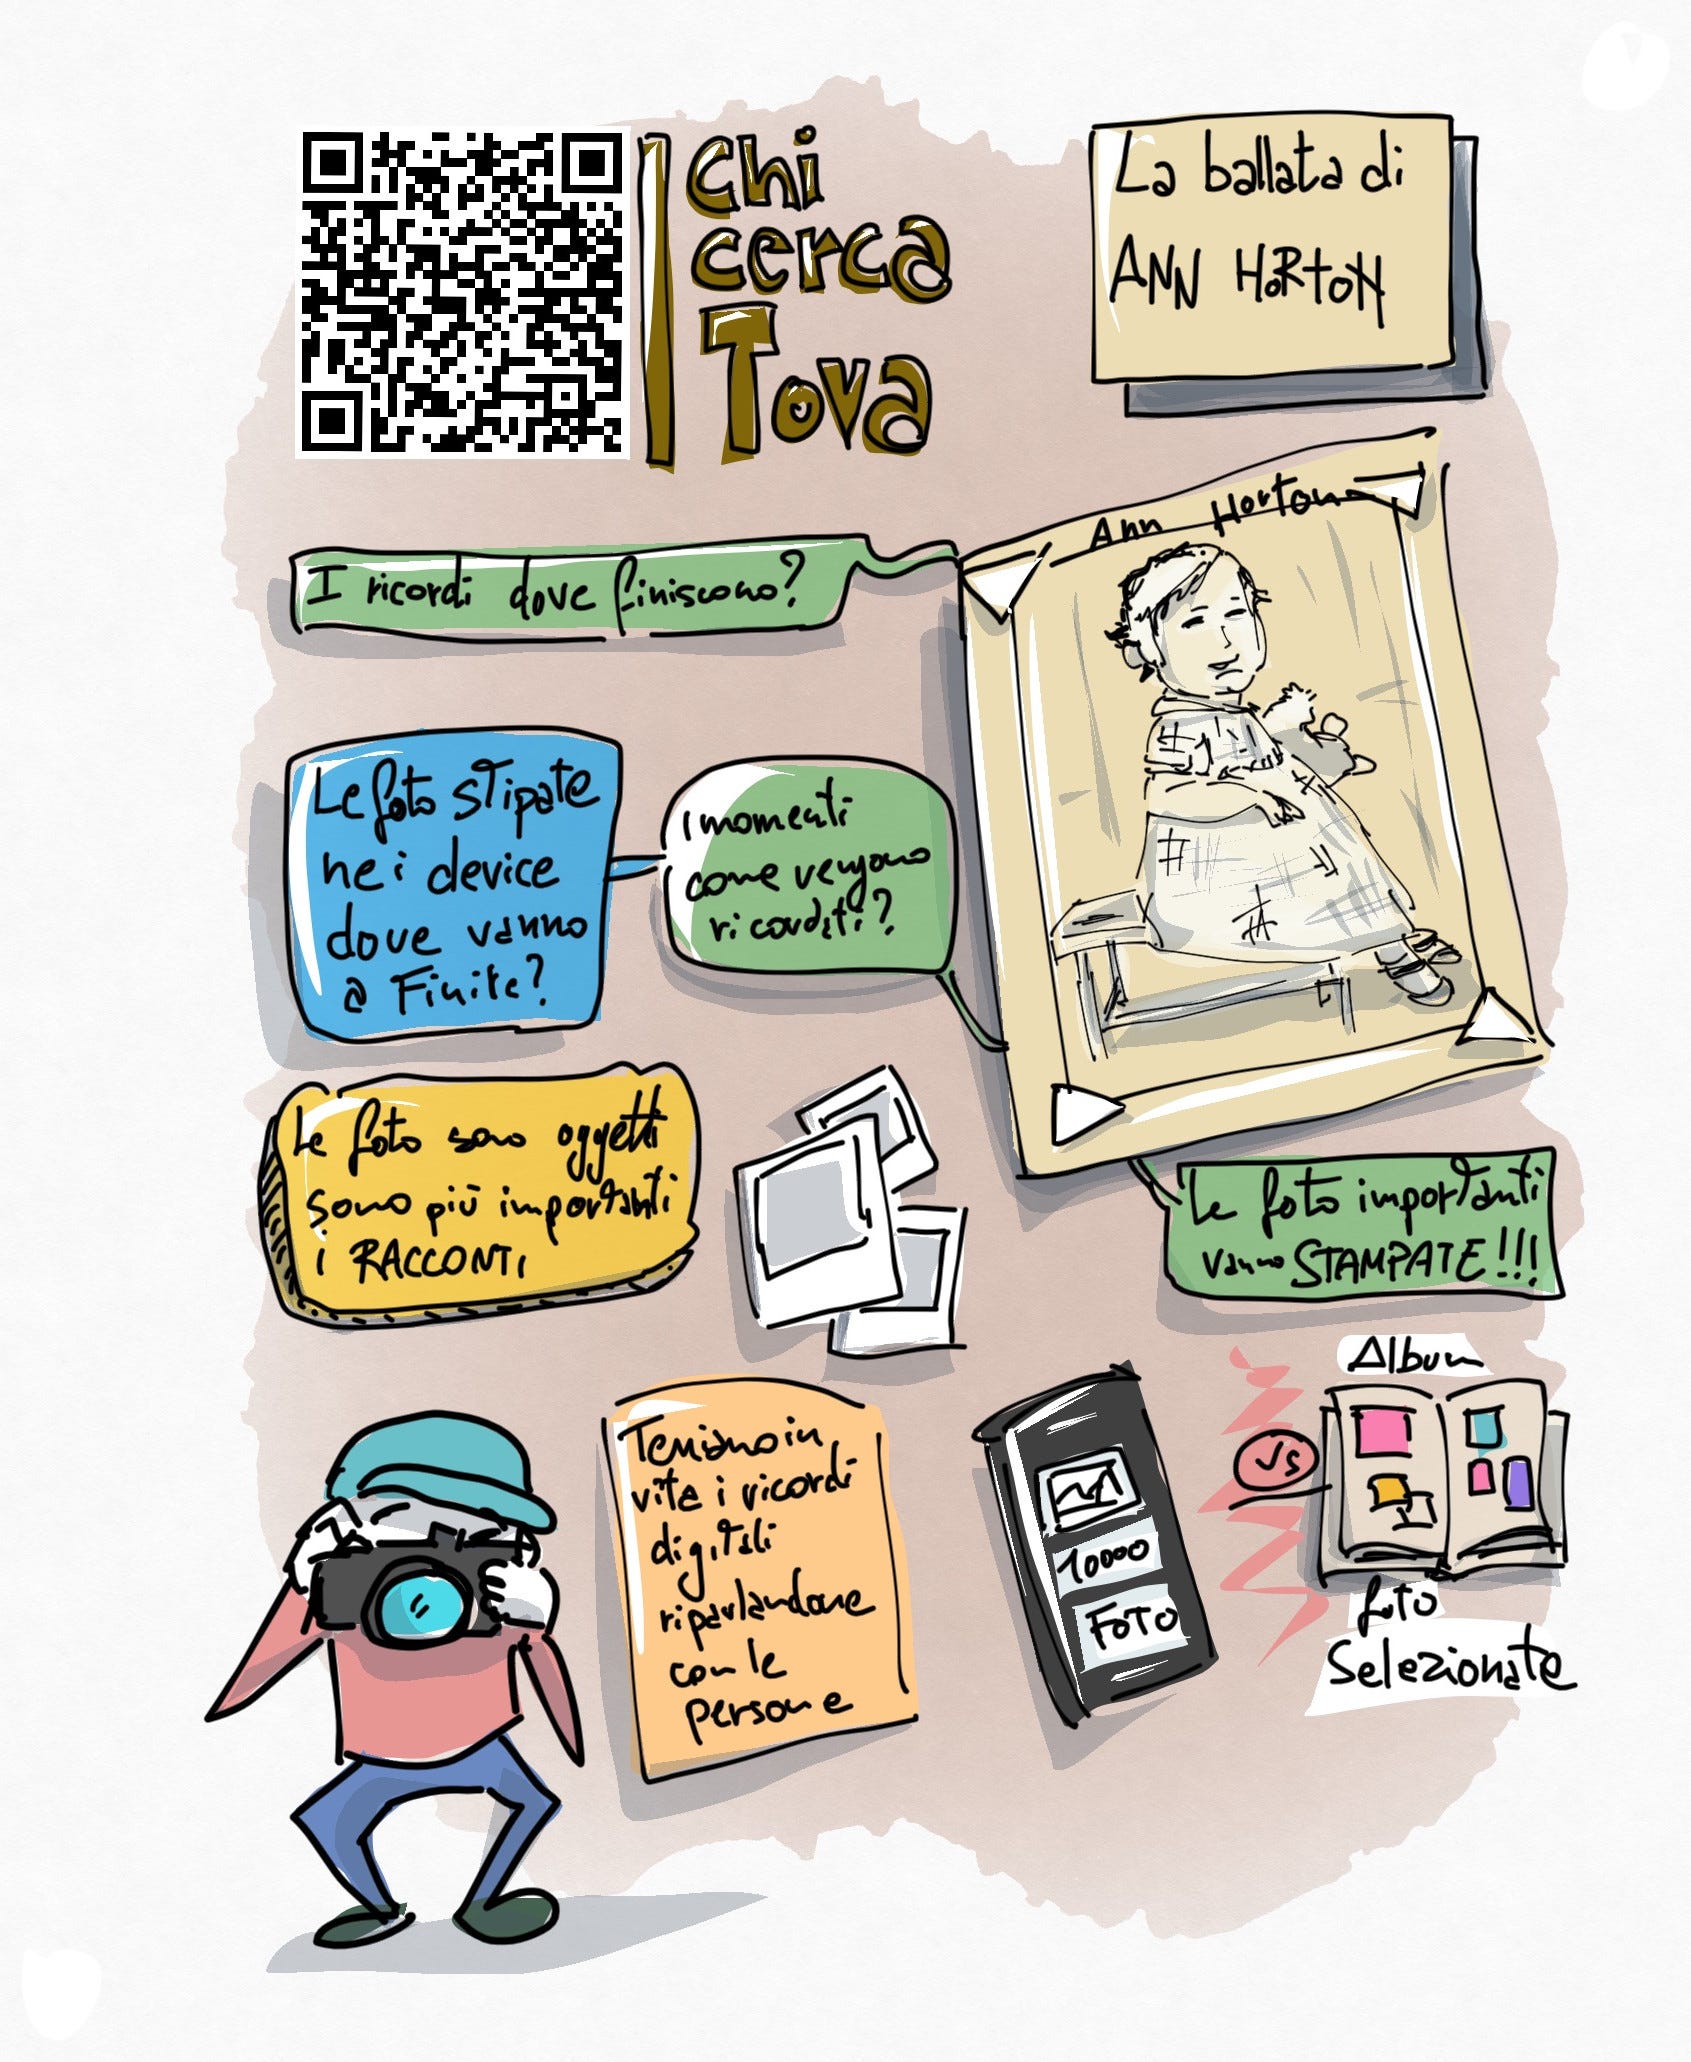 Chi
cerca
Tova
La ballata di
ANN HORTON
Ann Horton
I ricordi dove finiscono?
Le foto stipate
nei device
dove vanno
a Finire?
I momenti
come vengono
ricordati?
Le foto sono oggetti
sono più importanti
i RACCONTI
Le foto importanti
vanno STAMPATE!!!
Teniamo in
vita i ricordi
digitali
riparlandone
con le
persone
10000
FOTO
Vs
Album
foto
Selezionate